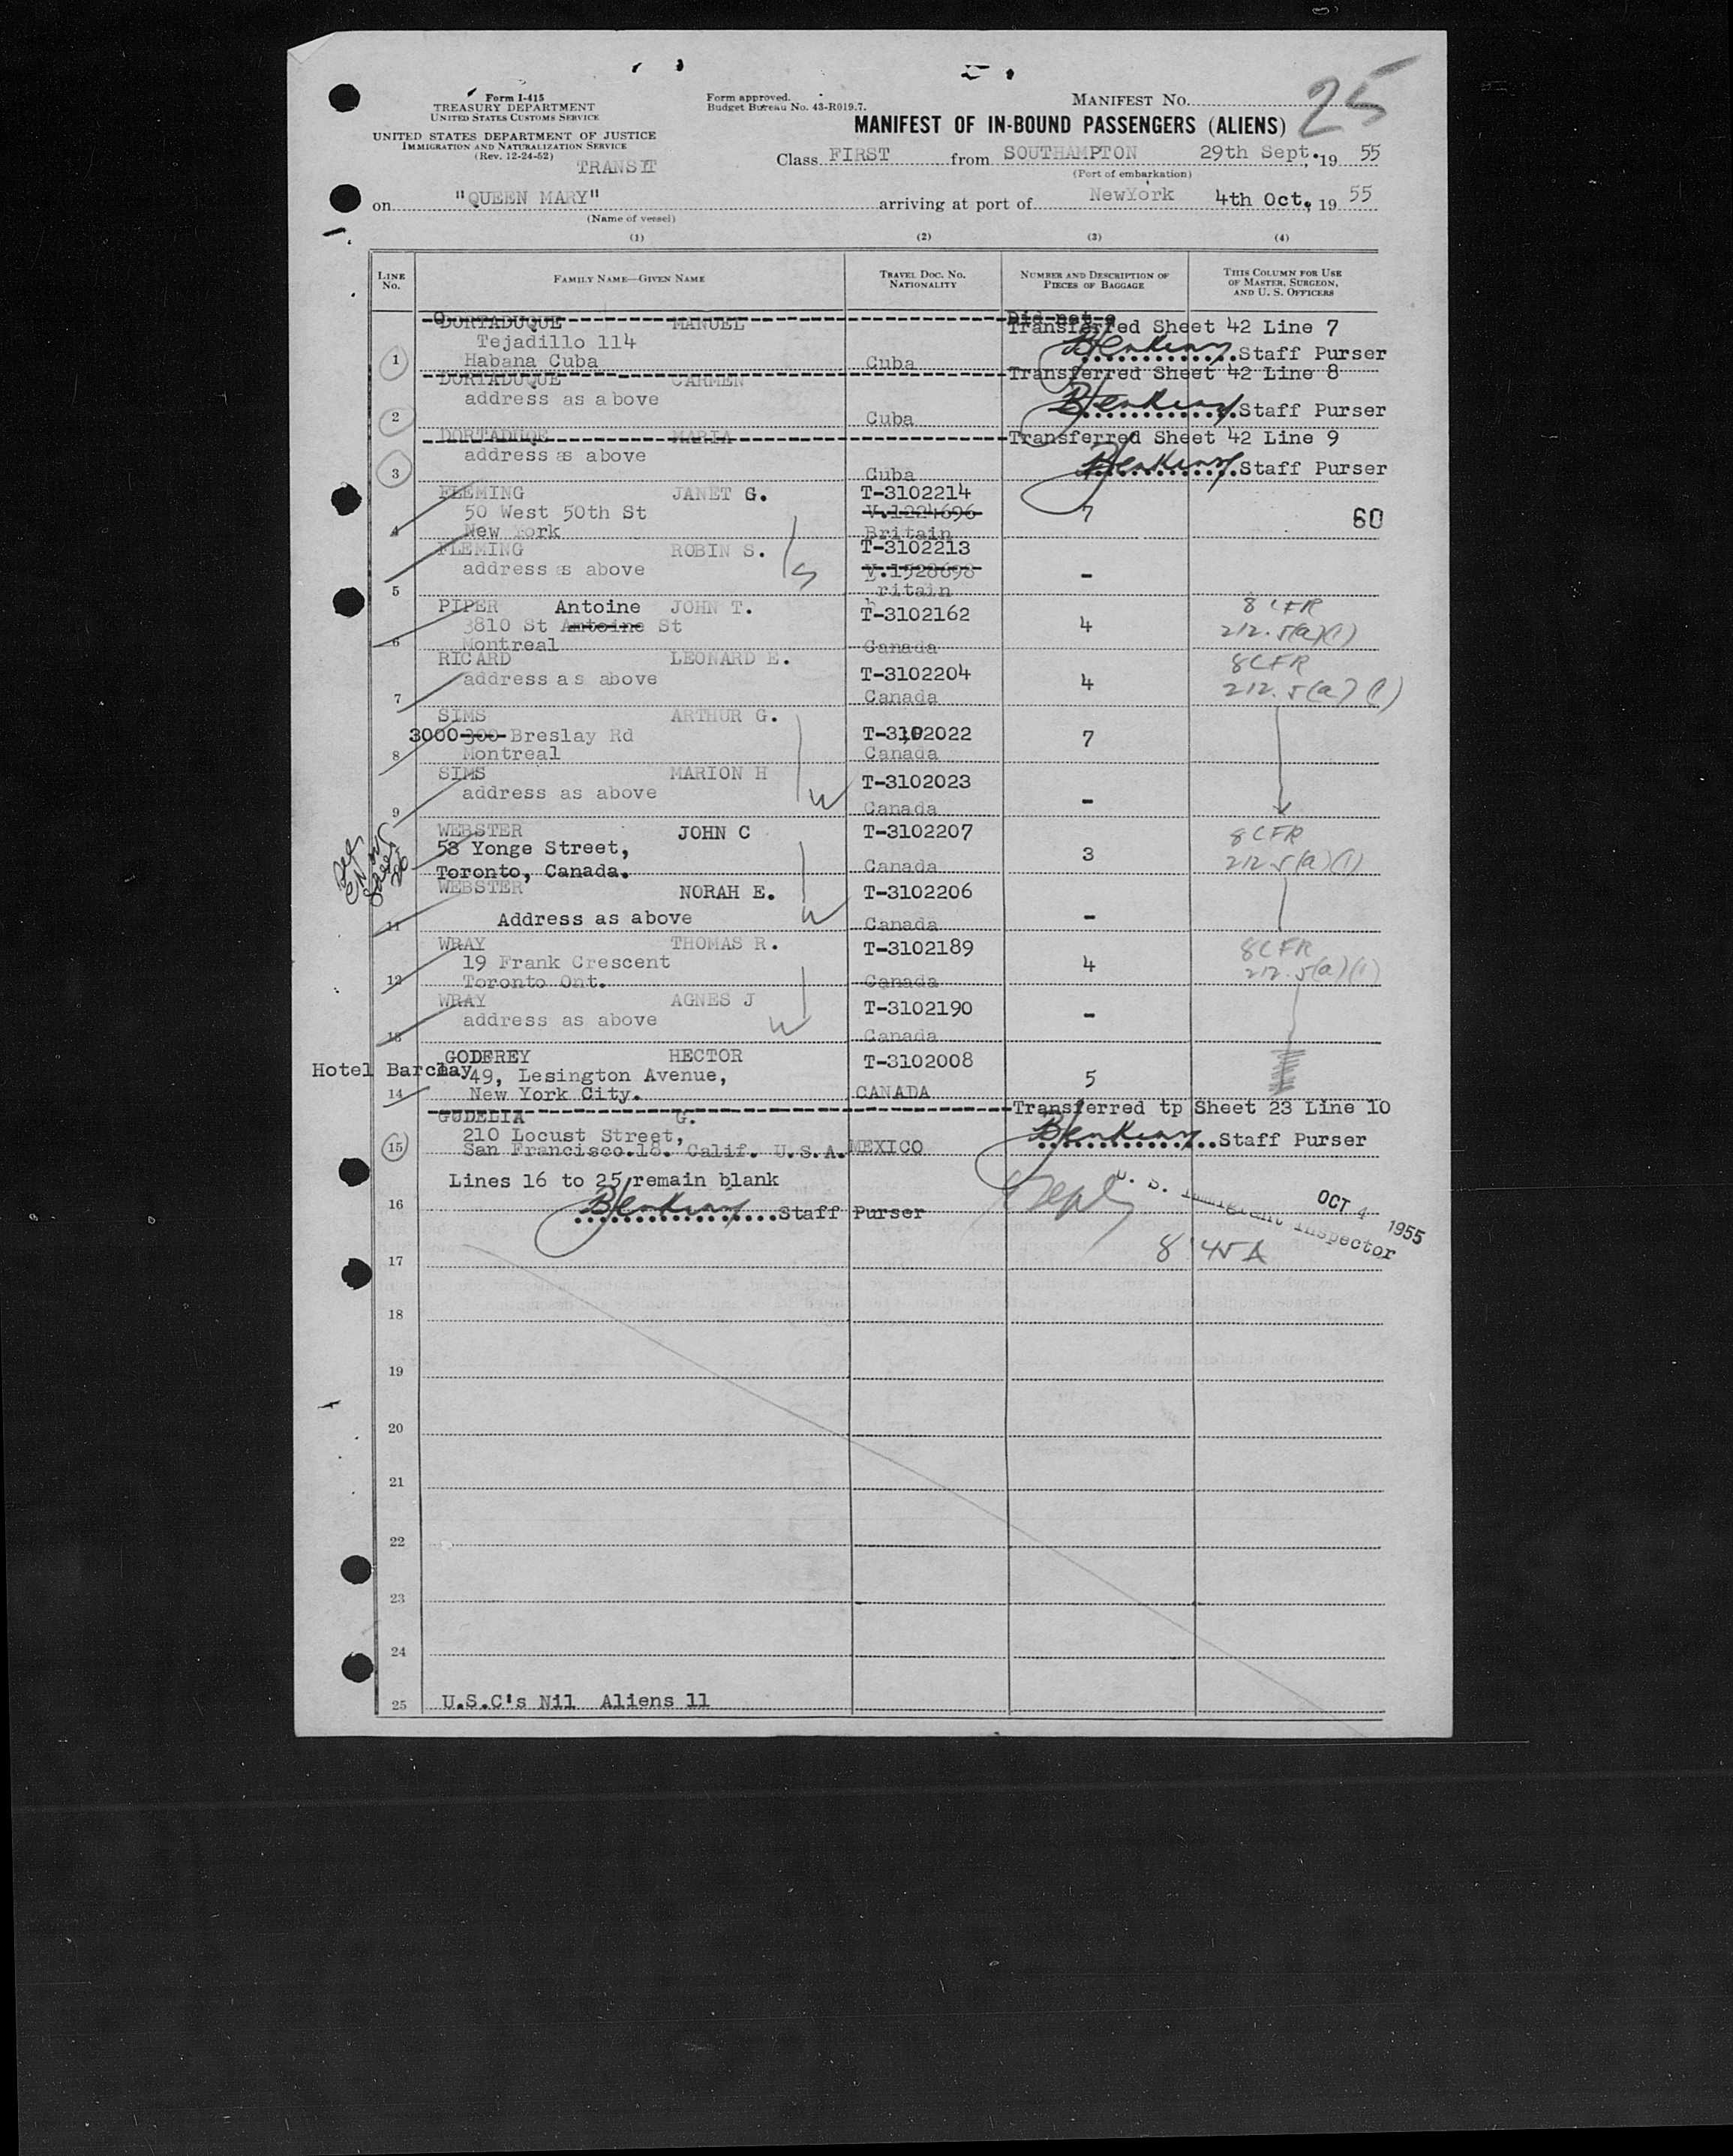 Form I-415
TREASURY DEPARTMENT
UNITED STATES CUSTOMS SERVICE
UNITED STATES DEPARTMENT OF JUSTICE
IMMIGRATION AND NATURALIZATION SERVICE
(Rev. 12-24-52)
TRANSIT
Form approved.
Budget Bureau No. 43-R019.7.
MANIFEST No. 25
MANIFEST OF IN-BOUND PASSENGERS (ALIENS)
Class FIRST from SOUTHAMPTON 29th Sept. 19 55
(Port of embarkation)
on "QUEEN MARY" arriving at port of NewYork 4th Oct. 19 55
(Name of vessel)
(1) (2) (3) (4)
LINE No. FAMILY NAME—GIVEN NAME TRAVEL DOC. No. NATIONALITY NUMBER AND DESCRIPTION OF PIECES OF BAGGAGE THIS COLUMN FOR USE OF MASTER, SURGEON, AND U. S. OFFICERS
DORTADUQUE MANUEL Transferred Sheet 42 Line 7
Tejadillo 114
1 Habana Cuba Cuba Staff Purser
DORTADUQUE CARMEN Transferred Sheet 42 Line 8
address as above
2 Cuba Staff Purser
DORTADUQE MARIA Transferred Sheet 42 Line 9
address as above
3 Cuba Staff Purser
FLEMING JANET G. T-3102214
50 West 50th St V.1224696 7 60
4 New York Britain
FLEMING ROBIN S. T-3102213
address as above V.1528698 -
5 S ritain
PIPER Antoine JOHN T. T-3102162 8 CFR
3810 St Antoine St 4 212.5(a)(1)
6 Montreal Canada
RICARD LEONARD E. T-3102204 8CFR
address as above 4 212.5(a)(1)
7 Canada
SIMS ARTHUR G.
3000 300 Breslay Rd T-3102022 7
8 Montreal Canada
SIMS MARION H T-3102023
address as above W -
9 Canada
WEBSTER JOHN C T-3102207 8 CFR
58 Yonge Street, 3 212.5(a)(1)
Toronto, Canada. Canada
WEBSTER NORAH E. T-3102206
Address as above W -
11 Canada
WRAY THOMAS R. T-3102189 8CFR
19 Frank Crescent 4 212.5(a)(1)
12 Toronto Ont. Canada
WRAY AGNES J T-3102190
address as above W -
13 Canada
GODFREY HECTOR T-3102008
Hotel Barclay 49, Lesington Avenue, 5
14 New York City. CANADA
GUDELIA G. Transferred tp Sheet 23 Line 10
210 Locust Street,
15 San Francisco.18. Calif. U.S.A. MEXICO Staff Purser
Lines 16 to 25 remain blank
16 Staff Purser
U. S. Immigrant Inspector
OCT 4 1955
8 45 A
17
18
19
20
21
22
23
24
25 U.S.C's Nil Aliens 11